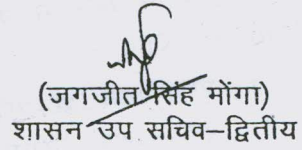 (जगजीत सिंह मोंगा)
शासन उप सचिव–द्वितीय